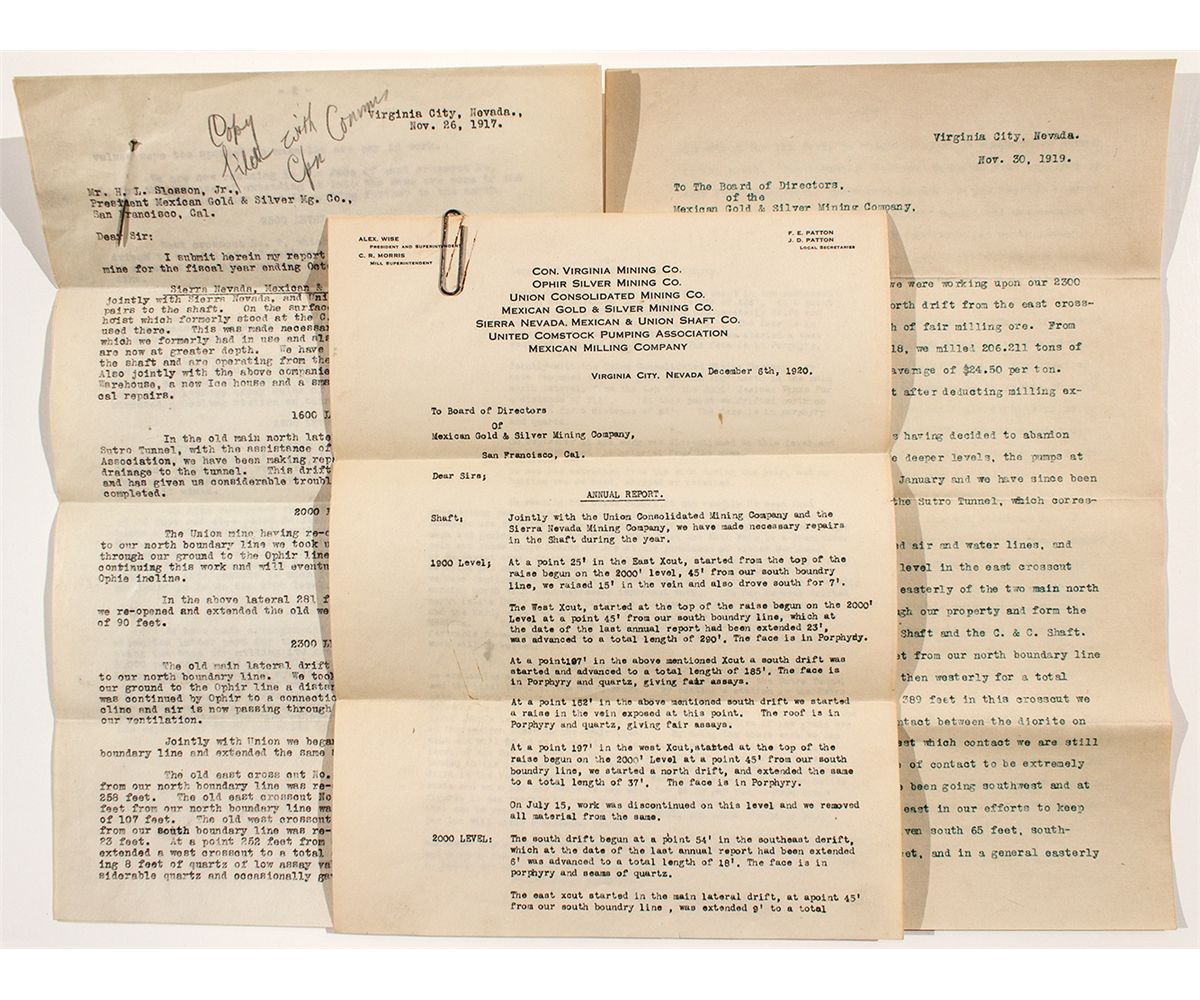 Copy
filed with Comms
Virginia City, Nevada.,
Nov. 26, 1917.
Mr. H. L. Slosson, Jr.,
President Mexican Gold & Silver Mg. Co.,
San Francisco, Cal.
Dear Sir:
I submit herein my report
mine for the fiscal year ending Oct
Sierra Nevada, Mexican &
jointly with Sierra Nevada, and Uni
pairs to the shaft. On the surfac
hoist which formerly stood at the C.
used there. This was made necessar
which we formerly had in use and als
are now at greater depth. We have
the shaft and are operating from the
Also jointly with the above companie
Warehouse, a new Ice house and a sma
cal repairs.
1600 L
In the old main north late
Sutro Tunnel, with the assistance of
Association, we have been making rep
drainage to the tunnel. This drift
and has given us considerable troubl
completed.
2000 L
The Union mine having re-o
to our north boundary line we took u
through our ground to the Ophir line
continuing this work and will eventu
Ophie incline.
In the above lateral 281 f
we re-opened and extended the old we
of 90 feet.
2300 L
The old main lateral drift
to our north boundary line. We took
our ground to the Ophir line a distan
was continued by Ophir to a connectio
cline and air is now passing through
our ventilation.
Jointly with Union we began
boundary line and extended the same
The old east cross cut No.
from our north boundary line was re-
258 feet. The old east crosscut No
feet from our north boundary line wa
of 107 feet. The old west crosscut
from our south boundary line was re-
23 feet. At a point 252 feet from
extended a west crosscut to a total
ing 8 feet of quartz of low assay va
siderable quartz and occasionally ga
ALEX. WISE
PRESIDENT AND SUPERINTENDENT
C. R. MORRIS
MILL SUPERINTENDENT
F. E. PATTON
J. D. PATTON
LOCAL SECRETARIES
CON. VIRGINIA MINING CO.
OPHIR SILVER MINING CO.
UNION CONSOLIDATED MINING CO.
MEXICAN GOLD & SILVER MINING CO.
SIERRA NEVADA, MEXICAN & UNION SHAFT CO.
UNITED COMSTOCK PUMPING ASSOCIATION
MEXICAN MILLING COMPANY
VIRGINIA CITY, NEVADA December 6th, 1920.
To Board of Directors
Of
Mexican Gold & Silver Mining Company,
San Francisco, Cal.
Dear Sirs;
ANNUAL REPORT.
Shaft; Jointly with the Union Consolidated Mining Company and the
Sierra Nevada Mining Company, we have made necessary repairs
in the Shaft during the year.
1900 Level; At a point 25' in the East Xcut, started from the top of the
raise begun on the 2000' level, 45' from our south boundry
line, we raised 15' in the vein and also drove south for 7'.
The West Xcut, started at the top of the raise begun on the 2000'
Level at a point 45' from our south boundry line, which at
the date of the last annual report had been extended 23',
was advanced to a total length of 290'. The face is in Porphydy.
At a point197' in the above mentioned Xcut a south drift was
started and advanced to a total length of 185'. The face is
in Porphyry and quartz, giving fair assays.
At a point 162' in the above mentioned south drift we started
a raise in the vein exposed at this point. The roof is in
Porphyry and quartz, giving fair assays.
At a point 197' in the west Xcut,statted at the top of the
raise begun on the 2000' Level at a point 45' from our south
boundry line, we started a north drift, and extended the same
to a total length of 37'. The face is in Porphyry.
On July 15, work was discontinued on this level and we removed
all material from the same.
2000 LEVEL: The south drift begun at a point 54' in the southeast derift,
which at the date of the last annual report had been extended
6' was advanced to a total length of 18'. The face is in
porphyry and seams of quartz.
The east xcut started in the main lateral drift, at apoint 45'
from our south boundry line , was extended 9' to a total
Virginia City, Nevada.
Nov. 30, 1919.
To The Board of Directors,
of the
Mexican Gold & Silver Mining Company,
we were working upon our 2300
orth drift from the east cross-
h of fair milling ore. From
18, we milled 206.211 tons of
average of $24.50 per ton.
t after deducting milling ex-
s having decided to abandon
e deeper levels, the pumps at
January and we have since been
the Sutro Tunnel, which corres-
ed air and water lines, and
level in the east crosscut
easterly of the two main north
gh our property and form the
Shaft and the C. & C. Shaft.
et from our north boundary line
then westerly for a total
389 feet in this crosscut we
ntact between the diorite on
est which contact we are still
e of contact to be extremely
e been going southwest and at
east in our efforts to keep
ven south 65 feet, south-
eet, and in a general easterly